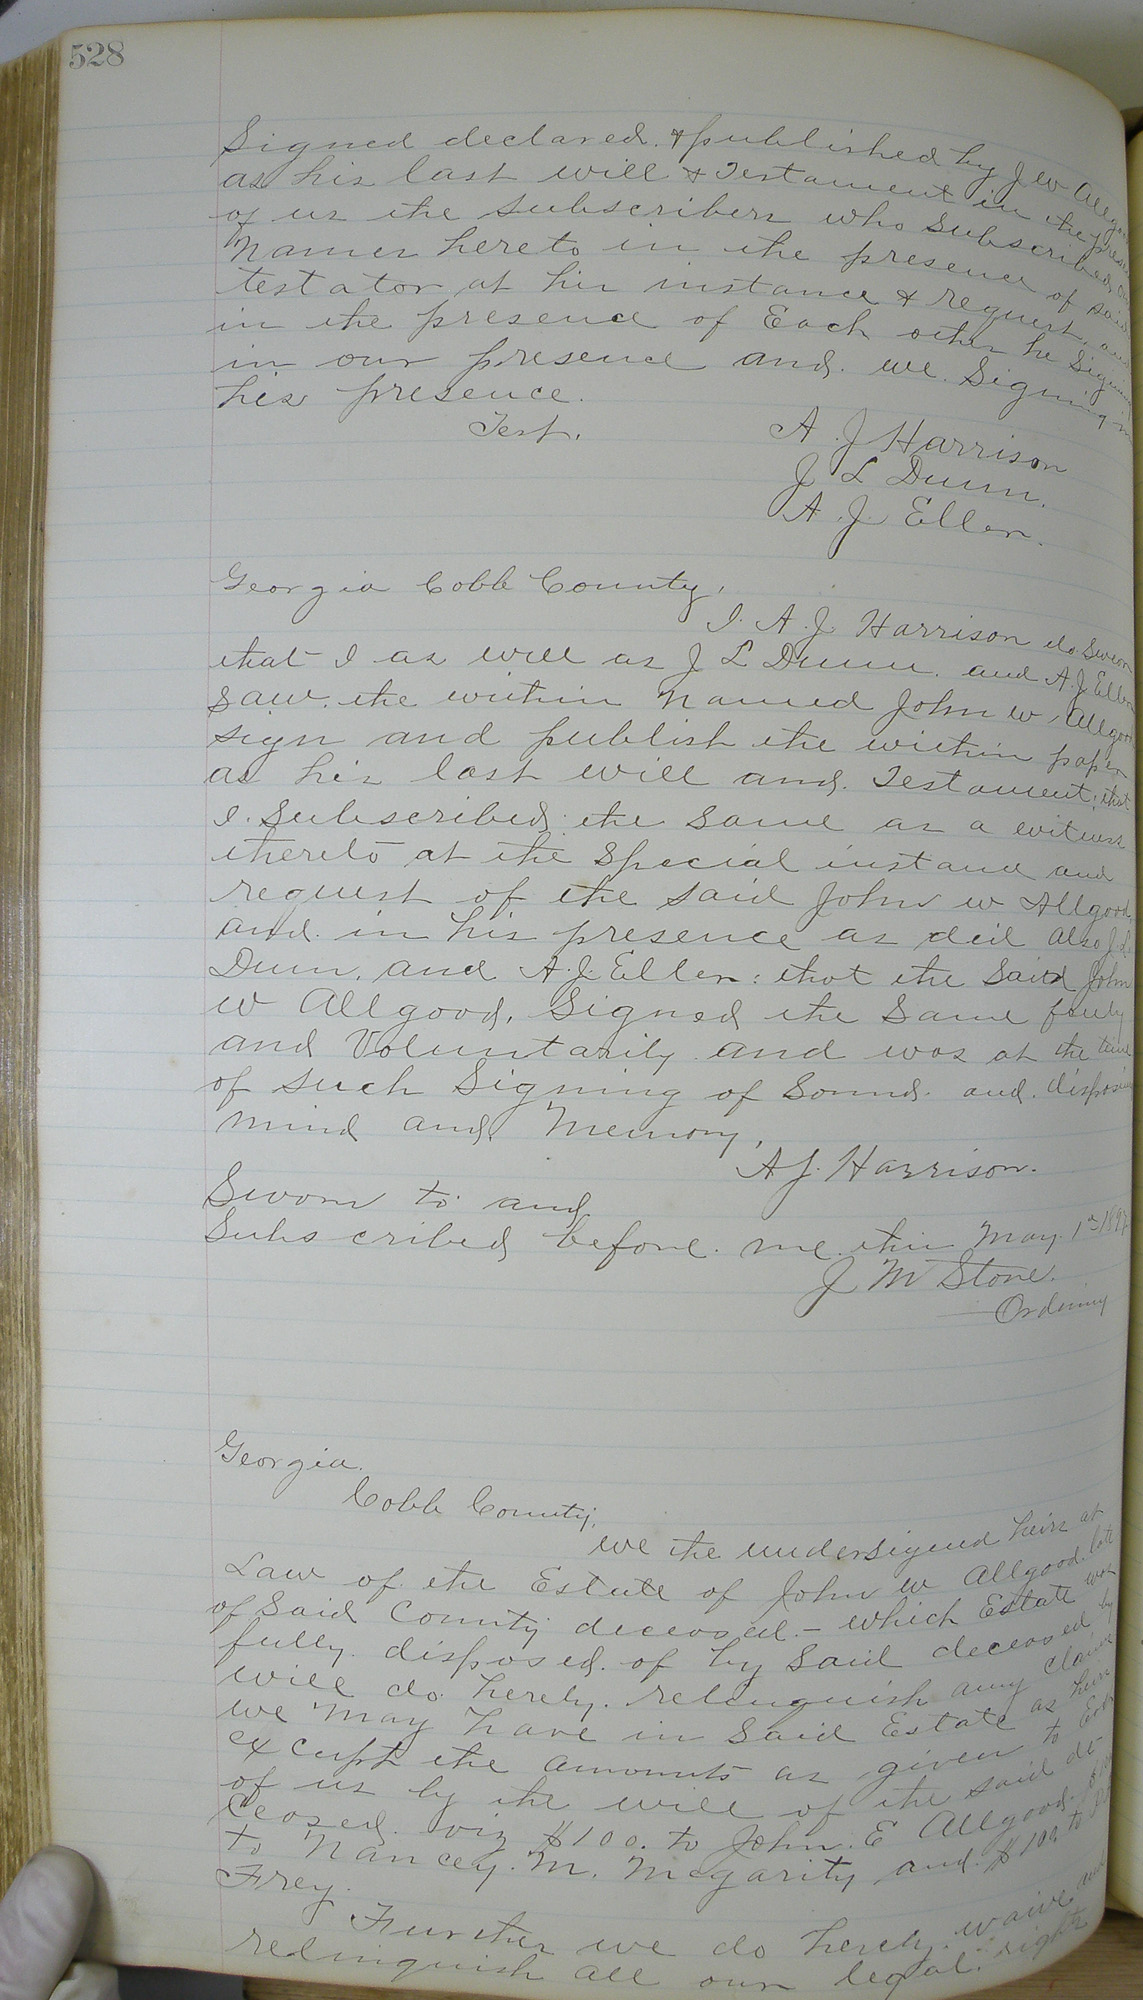 528
Signed declared & published by J W Allgood
as his last will & Testament in the presence
of us the subscribers who subscribed our
Names hereto in the presence of said
testator at his instance & request and
in the presence of Each other he Signing
in our presence and we Signing in
his presence.
Test.
A J Harrison
J L Dunn.
A. J. Ellen.
Georgia Cobb County,
I. A. J. Harrison do swear
that I as will as J L Dunn. and A. J. Ellen
saw the within named John W. Allgood
sign and publish the within paper
as his last will and Testament; that
I subscribed the same as a witness
thereto at the special instance and
request of the said John W Allgood
and in his presence as did also J. L.
Dunn, and A. J. Ellen: that the said John
W Allgood, Signed the same freely
and Voluntarily and was at the time
of such Signing of Sound and disposing
mind and Memory,
A J. Harrison.
Sworn to and
Subscribed before me this May 1st
J M Stone.
Ordinary
Georgia
Cobb County,
we the undersigned heirs at
Law of the Estate of John W Allgood late
of said County deceased - which Estate was
fully disposed of by said deceased by
will do hereby relenquish any claims
we may have in said Estate as heirs
except the amounts as given to Each
of us by the will of the said de
ceased. viz $100. to John. E Allgood.
to Nancey. M. Megarity and $100 to
Frey.
Further we do hereby waive and
relinquish all our legal rights